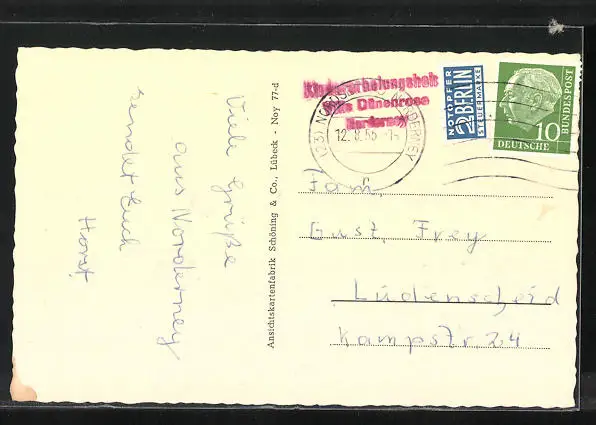 Viele Grüße
aus Norderney
sendet Euch
Horst
Ansichtskartenfabrik Schöning & Co., Lübeck - Noy 77-d
Kindererholungsheim
Haus Dünenrose
Norderney
(23) NORDSEEBAD NORDERNEY
12. 8. 55
NOTOPFER
2 BERLIN
STEUERMARKE
DEUTSCHE
BUNDESPOST
10
Fam.
Gust. Frey
Lüdenscheid
Kampstr. 24